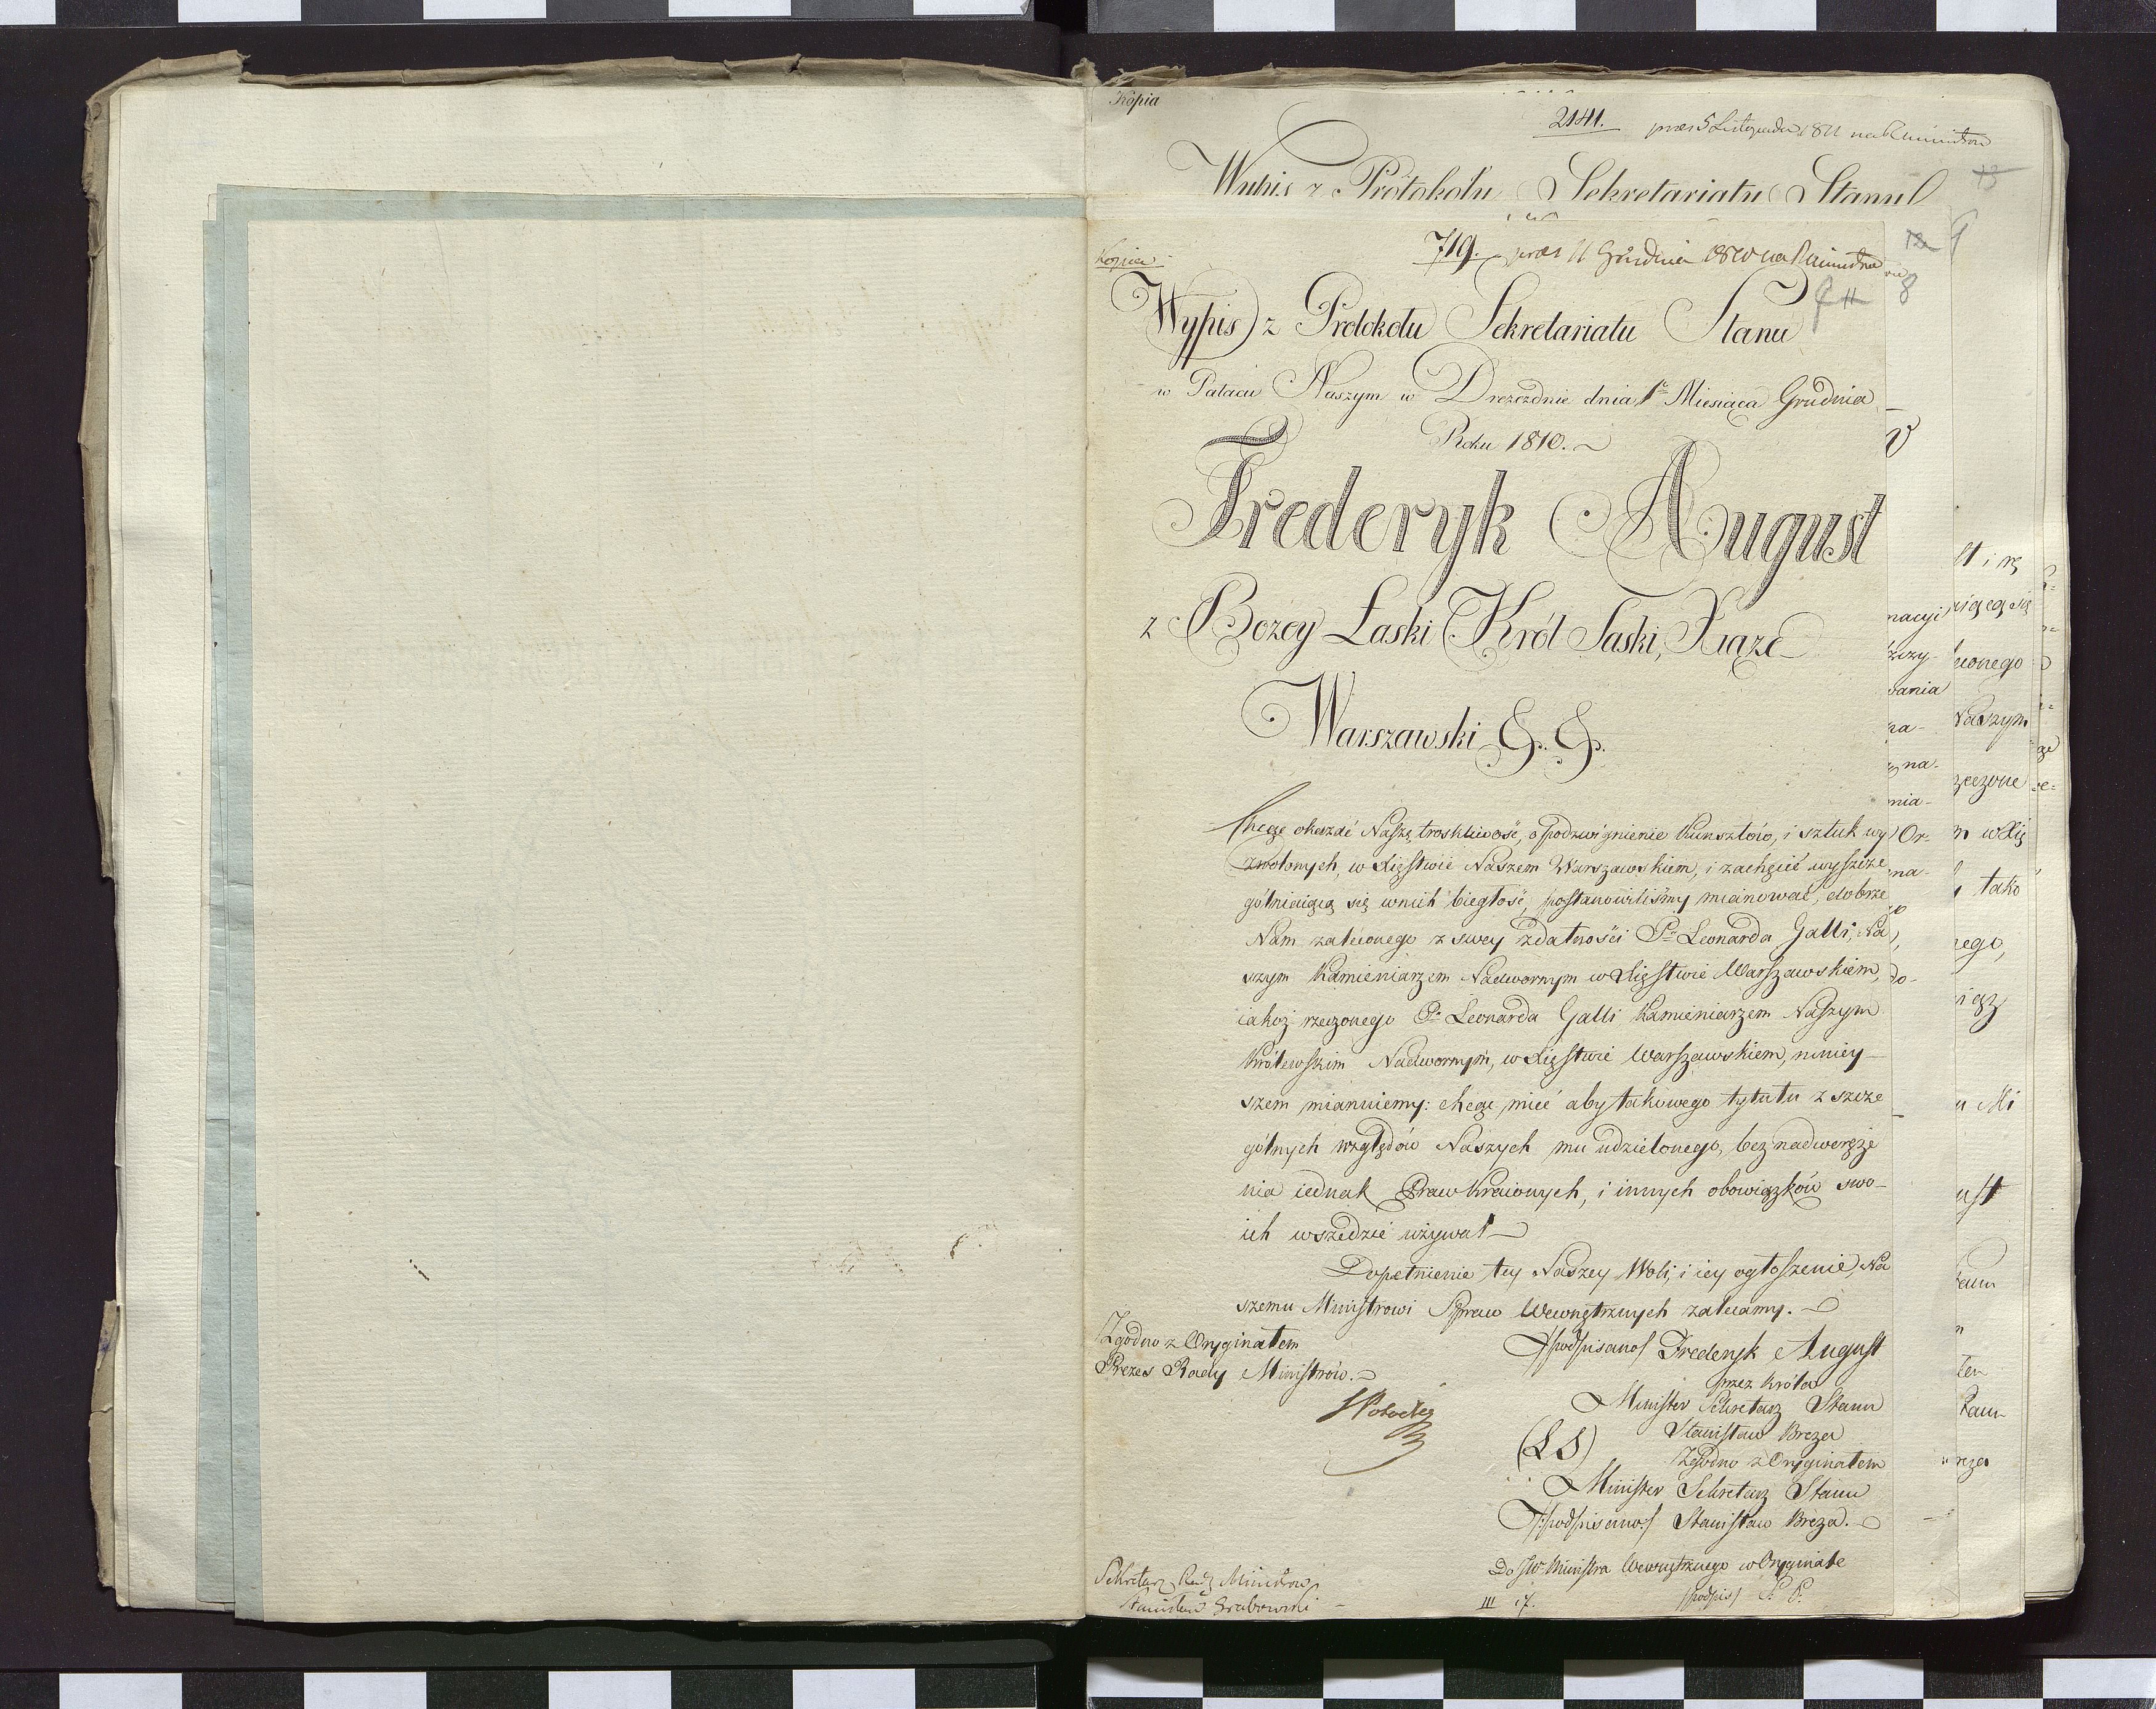 Kopia
2141. præs 5 Listopada 1811 na R.
13
Wypis z Protokołu Sekretariatu Stanu
9
Kopia
719. præs 11 Grudnia 1810 na R.
8
Wypis z Protokołu Sekretariatu Stanu
w Pałacu Naszym w Dreżdnie dnia 1º Miesiąca Grudnia
Roku 1810.
Frederyk August
z Bozey Łaski Król Saski, Xiąże
Warszawski &. &.
Chcąc okazać Naszą troskliwość, o podzwignienie Kunsztów, i sztuk wy
zwolonych, w Xięstwie Naszem Warszawskiem, i zachęcić wyszcze
gólniaiącą się wnich biegłość, postanowiliśmy mianować, dobrze
Nam zaleconego z swey zdatności Pª Leonarda Galli, Na
szym Kamieniarzem Nadwornym w Xięstwie Warszawskiem,
iakoż rzeczonego Pª Leonarda Galli Kamieniarzem Naszym
Królewskim Nadwornym, w Xięstwie Warszawskiem, niniey
szem mianuiemy: chcąc mieć aby takowego tytułu z szcze
gólnych względów Naszych mu udzielonego, bez nadweręże
nia iednak Praw Kraiowych, i innych obowiązków swo-
ich wszędzie używał
Dopełnienie tey Naszey Woli, i iey ogłoszenie, Na
szemu Ministrowi Spraw Wewnętrznych zalecamy.
Zgodno z Oryginałem
Prezes Rady Ministrów.
SPotocki
/podpisano/ Frederyk August
przez Króla
Minister Sekretarz Stanu
Stanisław Breza
(LS)
Zgodno z Oryginałem
Minister Sekretarz Stanu
/:podpisano:/ Stanisław Breza.
Do JW Ministra Wewnętrznego w Oryginale
/podpis/ S. P.
Sekretarz Rady Ministrów
Stanisław Grabowski
III 17.
nacyi
szczy-
wania
na-
mia-
Or-
na-
do-
conego
Naszym
rzeczone
m w Xię
tako
nego,
iąz
u Mi
ust
Stanu
Stanu
Breza